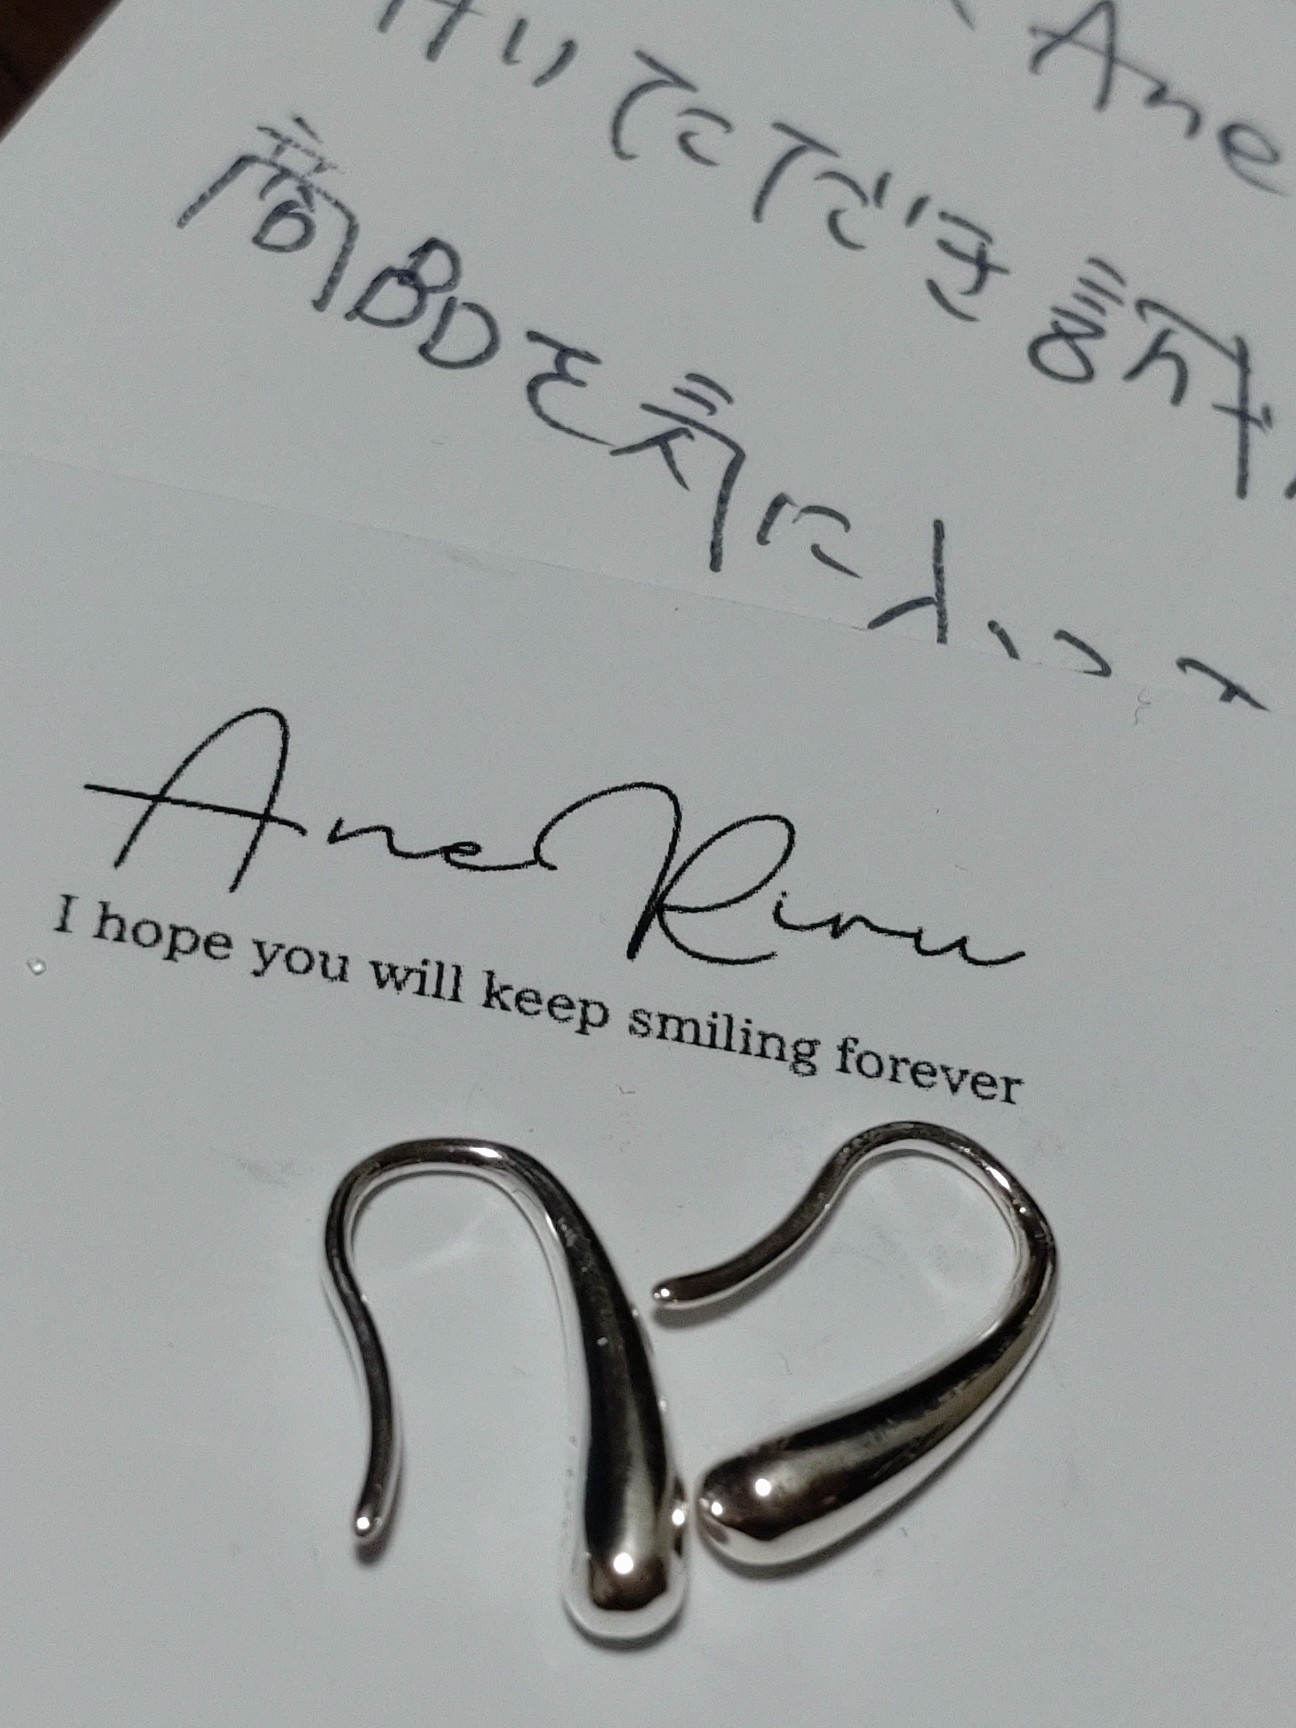 Ane
いただき誠に
商品を気に入って
AneRinu
I hope you will keep smiling forever